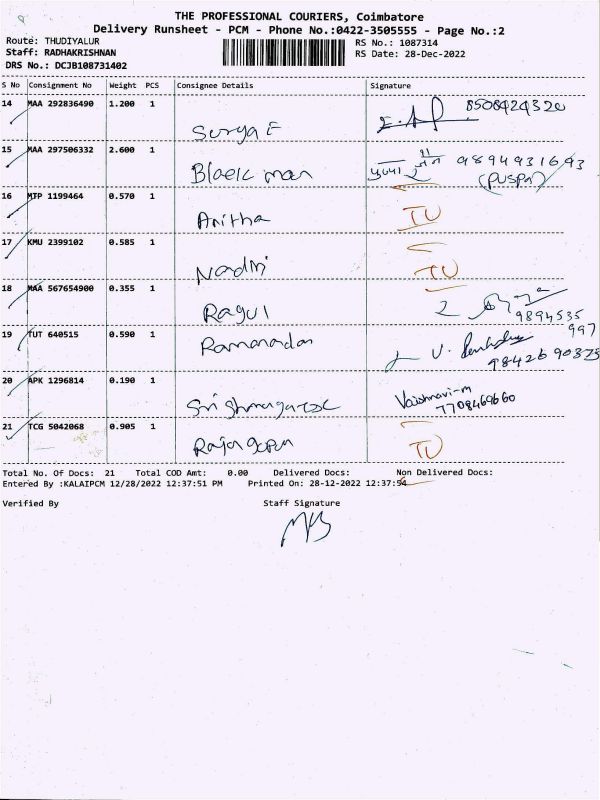 THE PROFESSIONAL COURIERS, Coimbatore
Delivery Runsheet - PCM - Phone No.:0422-3505555 - Page No.:2
Route: THUDIYALUR
RS No.: 1087314
Staff: RADHAKRISHNAN
RS Date: 28-Dec-2022
DRS No.: DCJB108731402
S No Consignment No Weight PCS Consignee Details Signature
14 MAA 292836490 1.200 1 Surya E
15 MAA 297506332 2.600 1 Black man
(PUSPA)
16 MTP 1199464 0.570 1 Anitha TU
17 KMU 2399102 0.585 1 Nadhi TU
18 MAA 567654900 0.355 1 Ragul
9894535
997
19 TUT 640515 0.590 1 Ramanadan
20 APK 1296814 0.190 1 Vaishnavi-m
7708469660
21 TCG 5042068 0.905 1 TU
Total No. Of Docs: 21 Total COD Amt: 0.00 Delivered Docs: Non Delivered Docs:
Entered By :KALAIPCM 12/28/2022 12:37:51 PM Printed On: 28-12-2022 12:37:54
Verified By Staff Signature